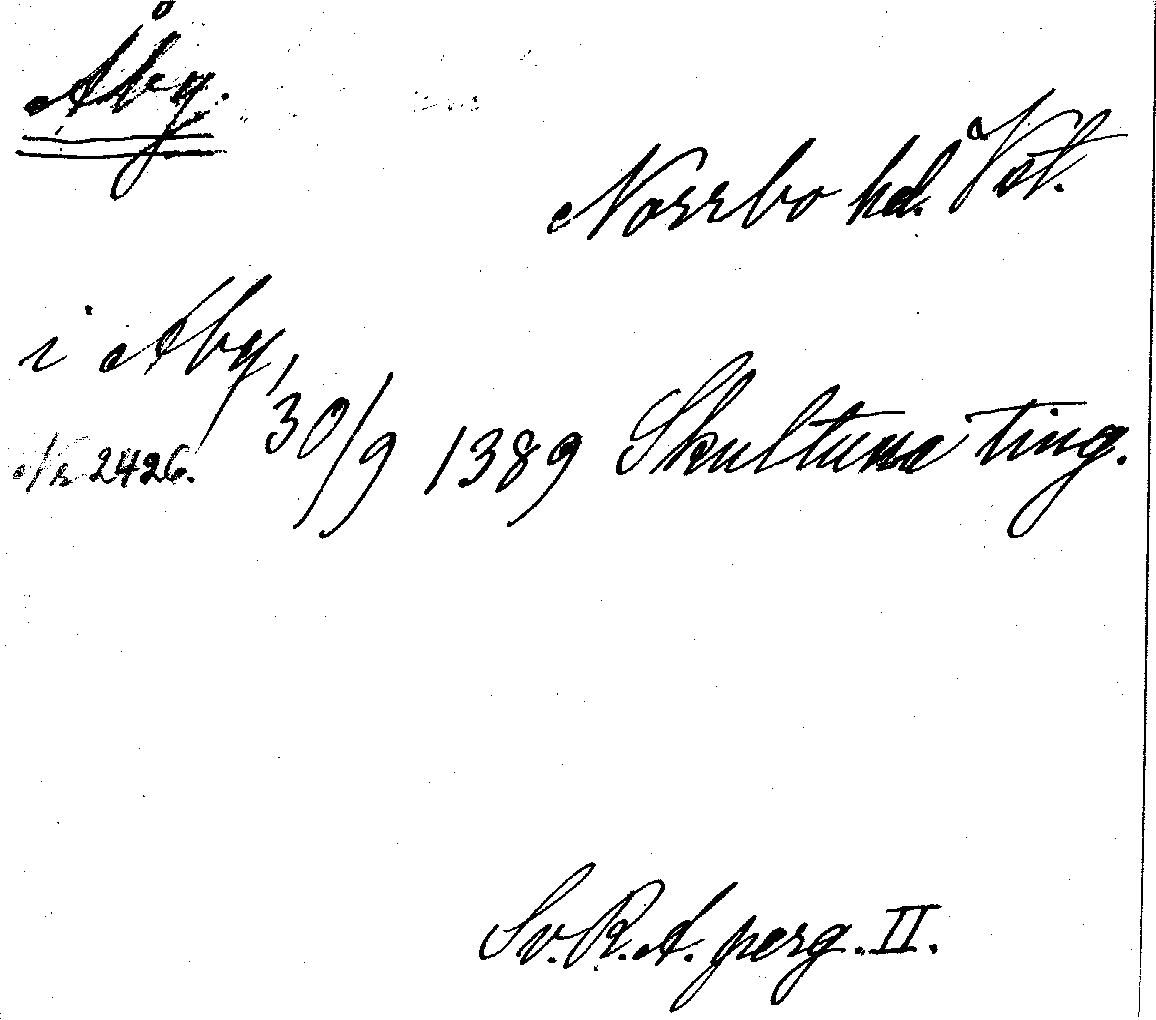 Åby.
Norrbo hd. Vst.
i Aby, 30/9 1389 Skultuna ting.
№ 2426.
Sv. R. A. perg. II.